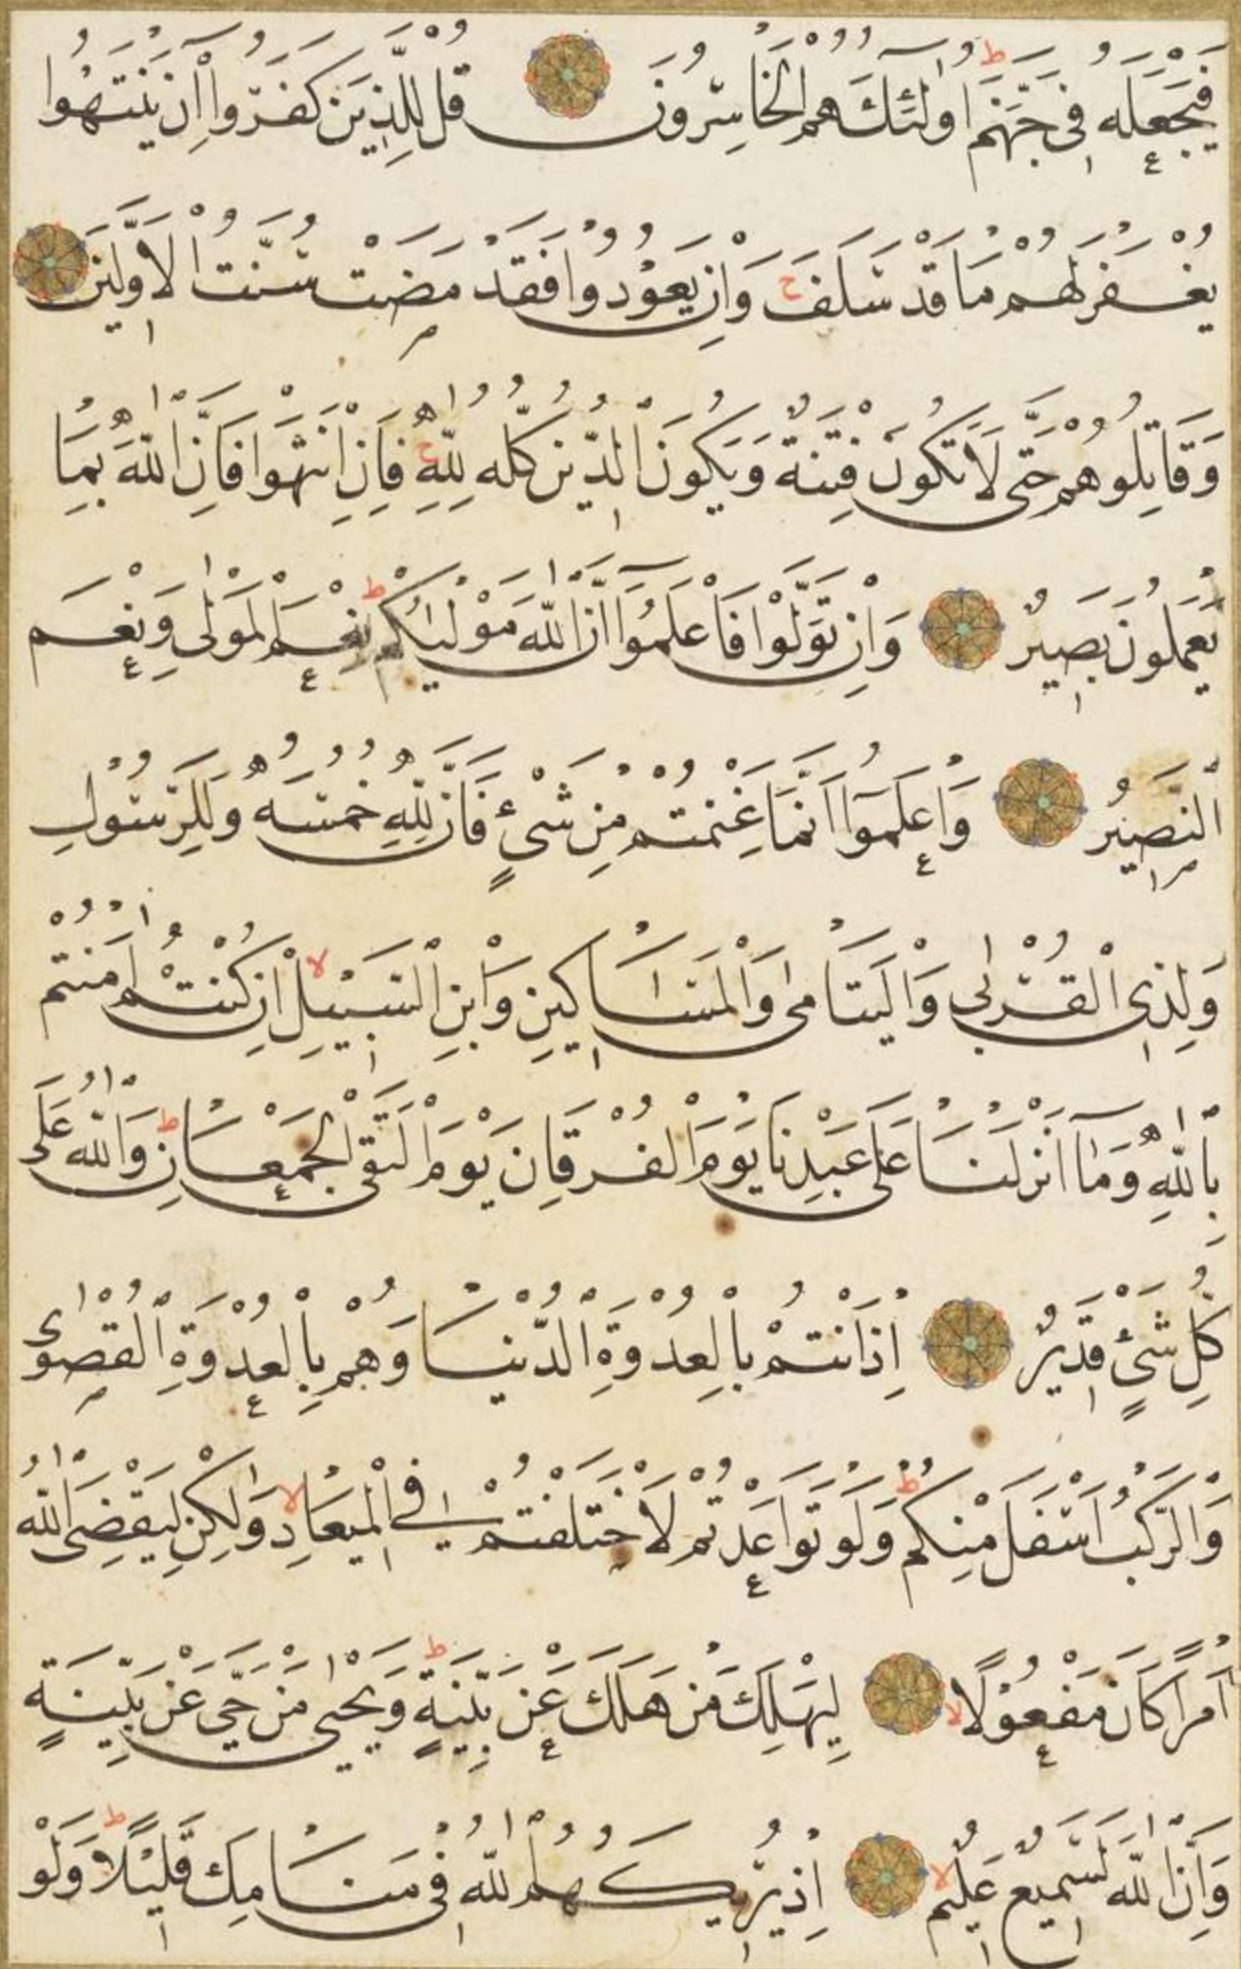 فَيَجْعَلَهُ فِى جَهَنَّمَ ط اُولٰٓئِكَ هُمُ الْخَاسِرُونَ قُلْ لِلَّذِينَ كَفَرُوا اِنْ يَنْتَهُوا
يُغْفَرْ لَهُمْ مَا قَدْ سَلَفَ ج وَاِنْ يَعُودُوا فَقَدْ مَضَتْ سُنَّتُ الْاَوَّلِينَ
وَقَاتِلُوهُمْ حَتّٰى لَا تَكُونَ فِتْنَةٌ وَيَكُونَ الدِّينُ كُلُّهُ لِلّٰهِ ج فَاِنِ انْتَهَوْا فَاِنَّ اللّٰهَ بِمَا
يَعْمَلُونَ بَصِيرٌ وَاِنْ تَوَلَّوْا فَاعْلَمُوٓا اَنَّ اللّٰهَ مَوْلٰيكُمْ ط نِعْمَ الْمَوْلٰى وَنِعْمَ
النَّصِيرُ وَاعْلَمُوٓا اَنَّمَا غَنِمْتُمْ مِنْ شَىْءٍ فَاَنَّ لِلّٰهِ خُمُسَهُ وَلِلرَّسُولِ
وَلِذِى الْقُرْبٰى وَالْيَتَامٰى وَالْمَسَاكِينِ وَابْنِ السَّبِيلِ لا اِنْ كُنْتُمْ اٰمَنْتُمْ
بِاللّٰهِ وَمَآ اَنْزَلْنَا عَلٰى عَبْدِنَا يَوْمَ الْفُرْقَانِ يَوْمَ الْتَقَى الْجَمْعَانِ ط وَاللّٰهُ عَلٰى
كُلِّ شَىْءٍ قَدِيرٌ اِذْ اَنْتُمْ بِالْعُدْوَةِ الدُّنْيَا وَهُمْ بِالْعُدْوَةِ الْقُصْوٰى
وَالرَّكْبُ اَسْفَلَ مِنْكُمْ ط وَلَوْ تَوَاعَدْتُمْ لَاخْتَلَفْتُمْ فِى الْمِيعَادِ لا وَلٰكِنْ لِيَقْضِىَ اللّٰهُ
اَمْرًا كَانَ مَفْعُولًا لا لِيَهْلِكَ مَنْ هَلَكَ عَنْ بَيِّنَةٍ ط وَيَحْيٰى مَنْ حَىَّ عَنْ بَيِّنَةٍ
وَاِنَّ اللّٰهَ لَسَمِيعٌ عَلِيمٌ لا اِذْ يُرِيكَهُمُ اللّٰهُ فِى مَنَامِكَ قَلِيلًا ط وَلَوْ